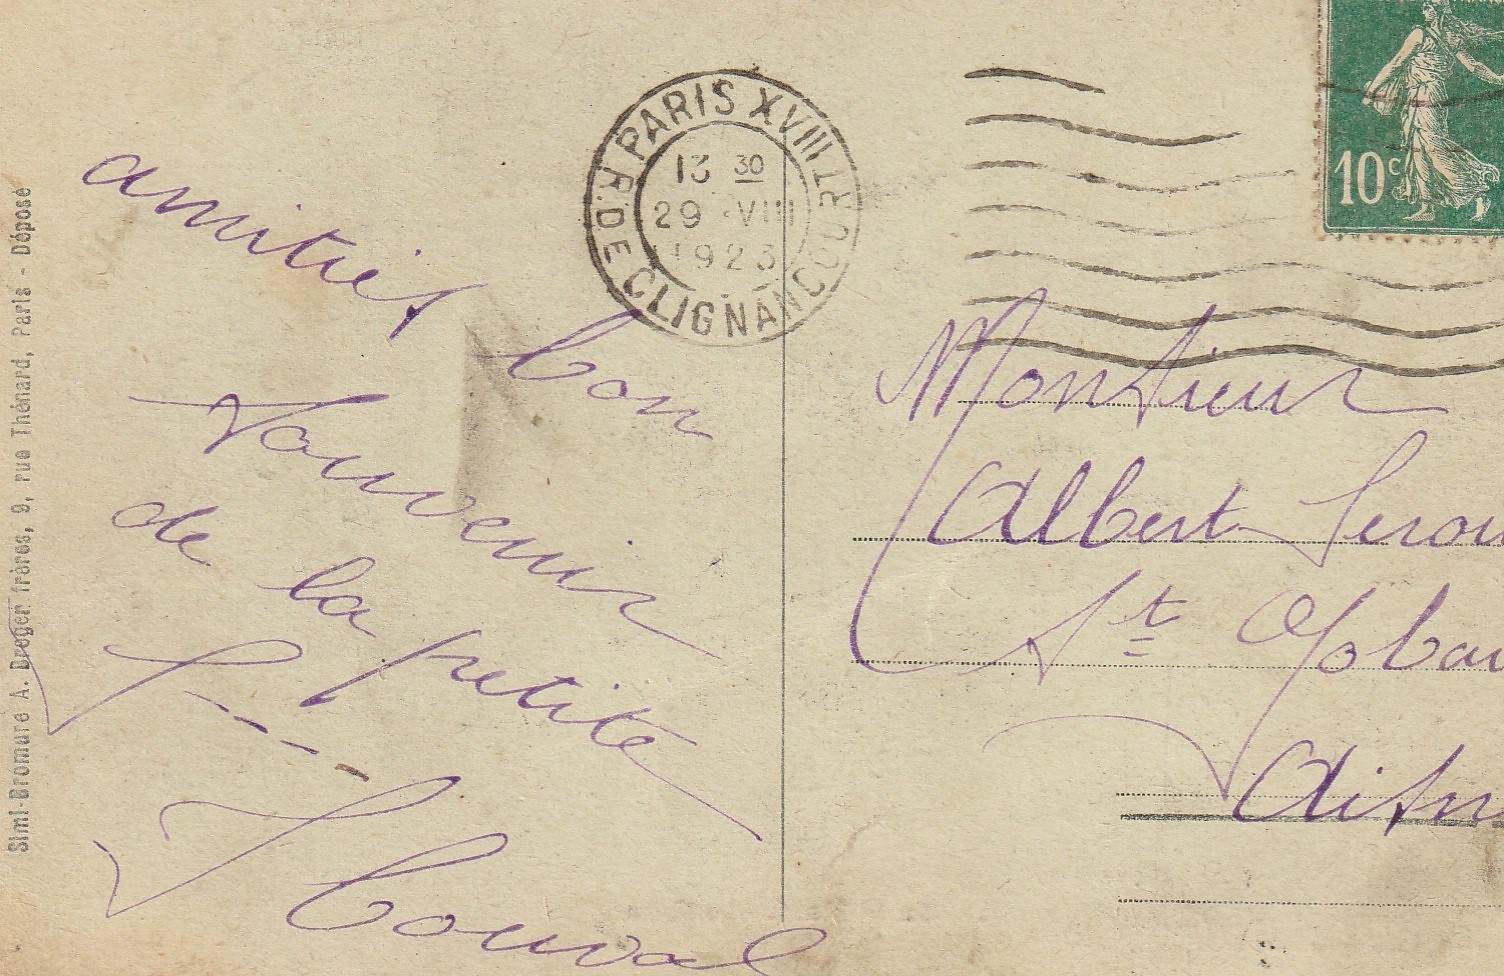 amitiés bon
souvenir
de la petite
Monsieur
Albert
St Gobain
Aisne
PARIS XVIII
R. DE CLIGNANCOURT
13 30
29 VIII
1923
10c
Simi-Bromure A. Breger frères, 9, rue Thénard, Paris - Déposé